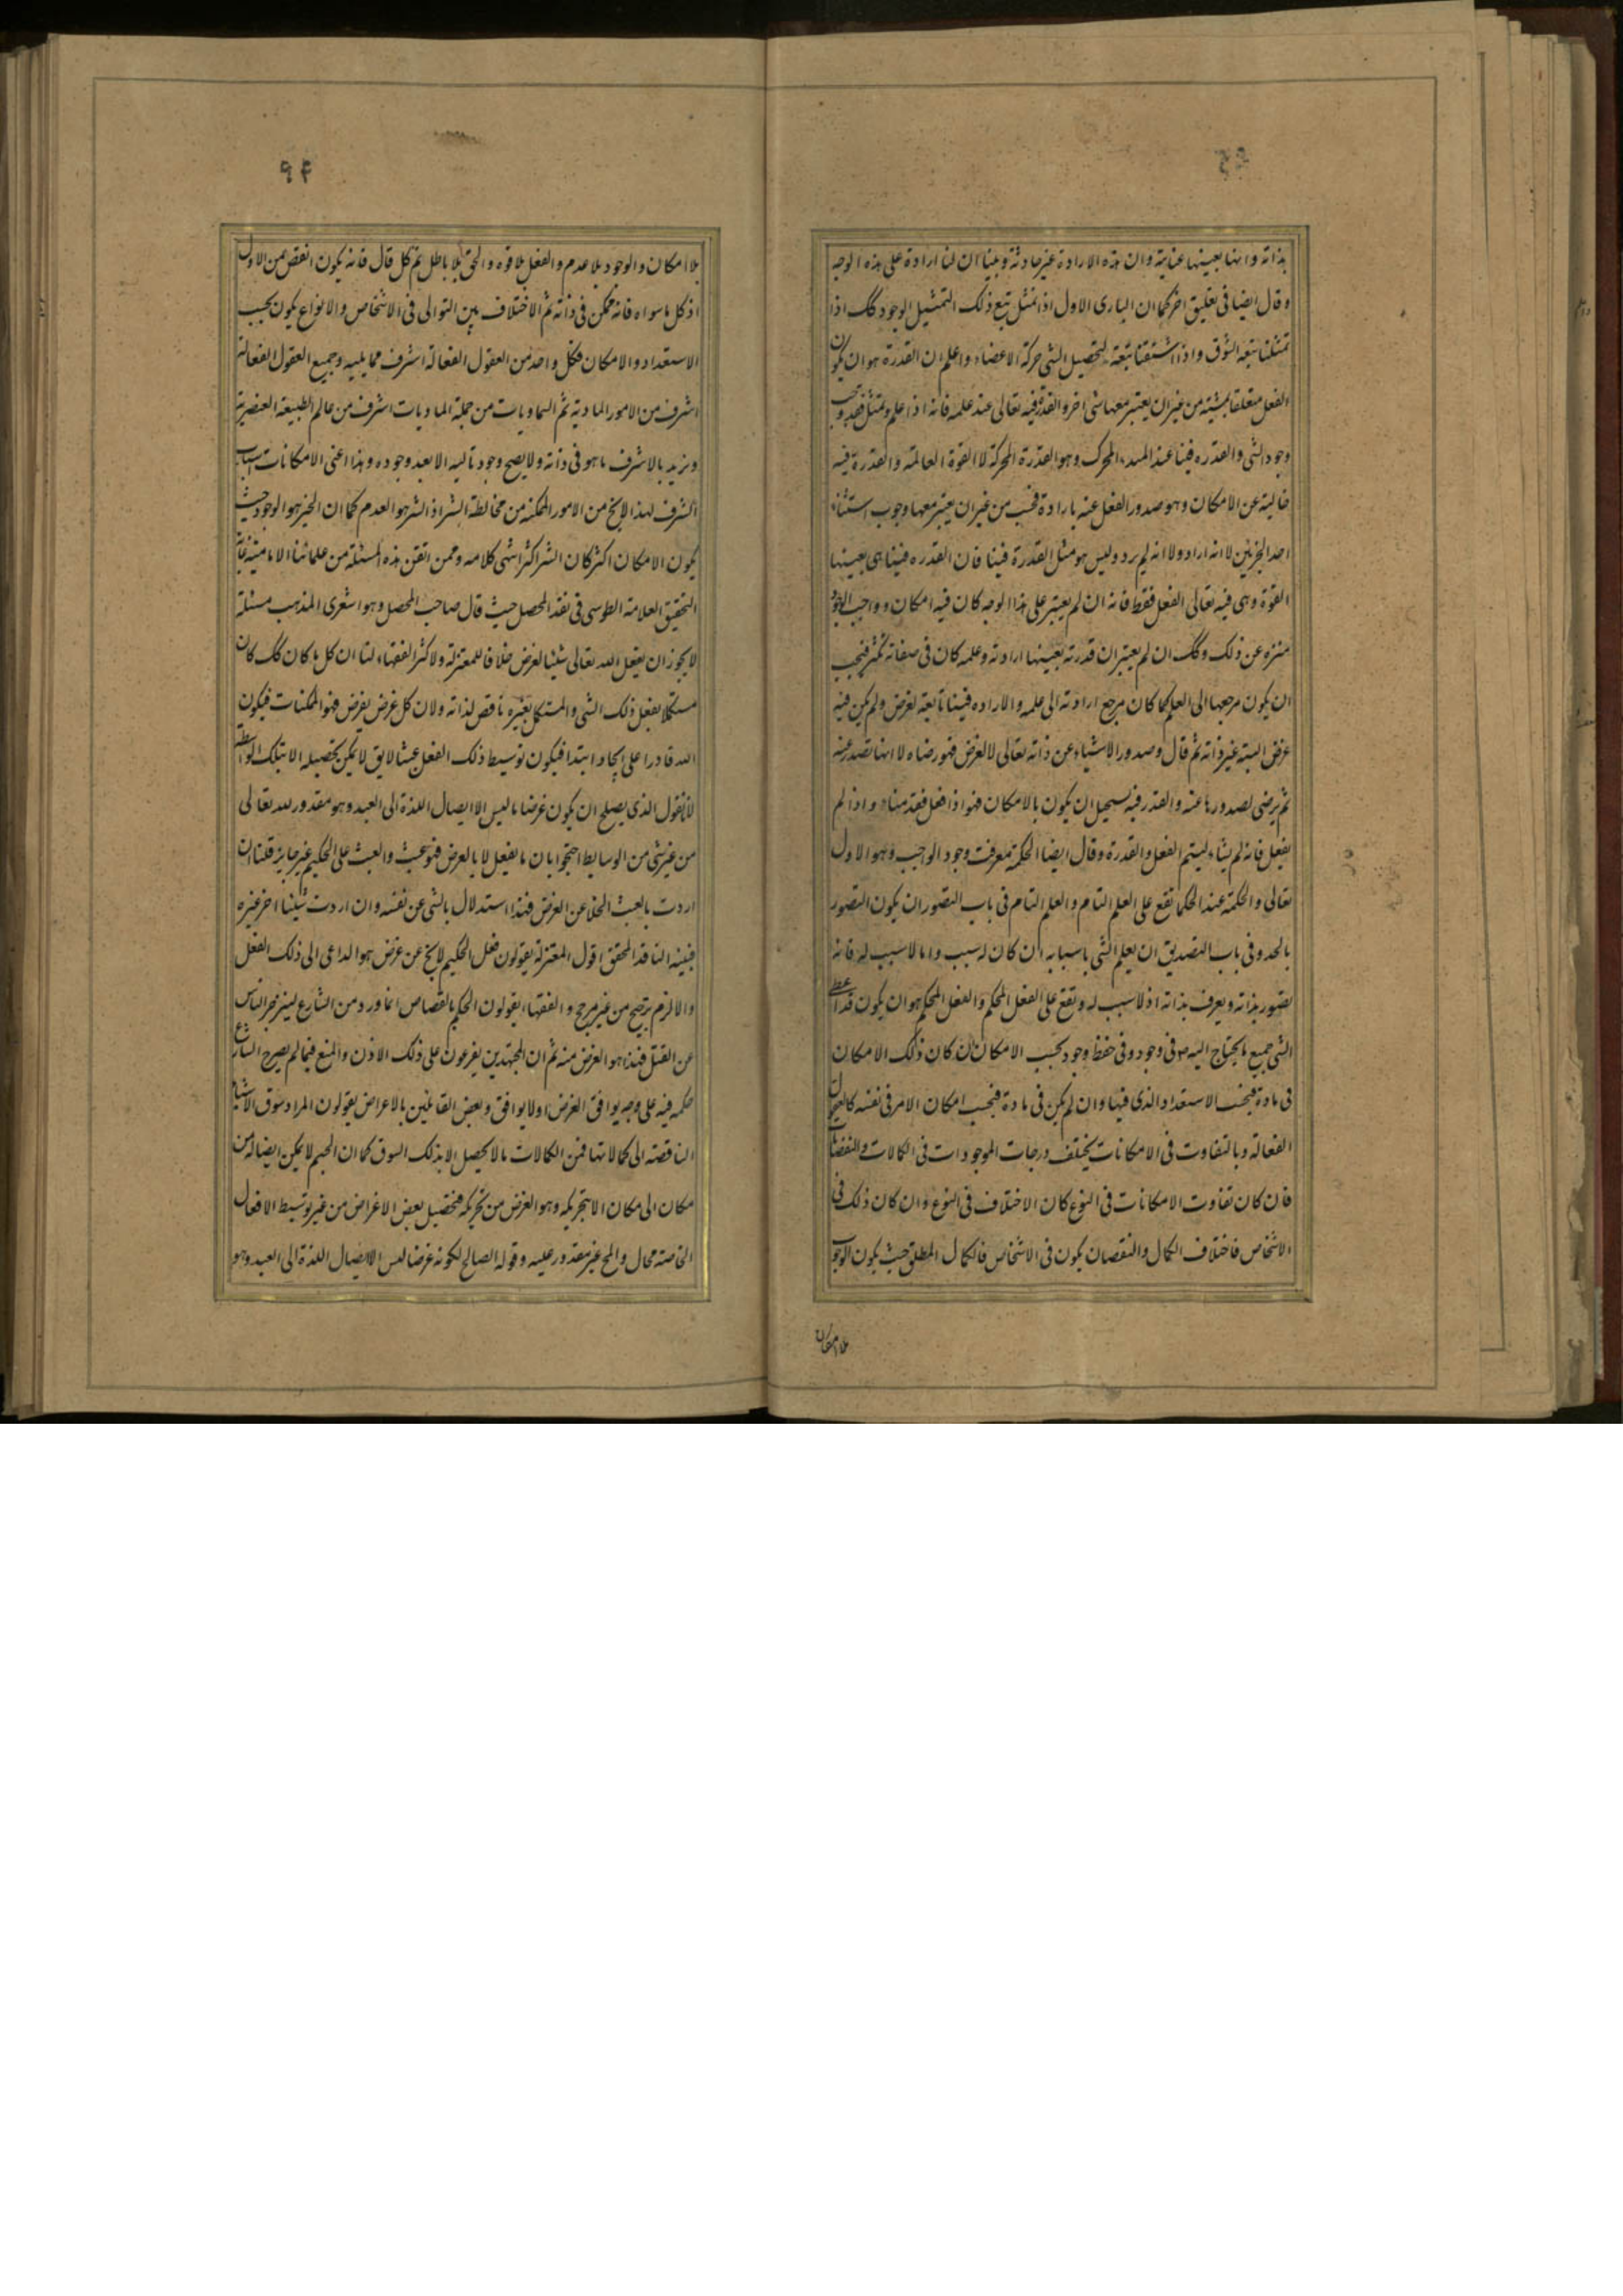 بذاته وانها بعينها عناية وان هذه الارادة غير حادثة وبينا ان لنا ارادة على هذه الوجه
وقال ايضا فى تعليق اخر كما ان البارى الاول اذا تمثل تبع ذلك التمثيل الوجود كك اذا
تمثلنا تبعه الشوق واذا اشتقنا تبعة لتحصيل الشى حركة الاعضاء واعلم ان القدرة هو ان يكون
الفعل متعلقا بمشيته من غير ان يعتبر معها شى اخر والقدرة فيه تعالى عند علمه فانه اذا علم وتمثل فقد وجب
وجود الشى والقدره فينا عند المبدء المحرك وهو القدرة المحركة لا القوة العالمة والقدرة فيه
خالية عن الامكان وهو صدور الفعل عنه بارادة فحسب من غير ان يعتبر معها وجوب استثناء
احد الجزئين لا انه اراد ولا انه لم يرد وليس هو مثل القدرة فينا فان القدره فينا هى بعينها
القوة وهى فيه تعالى الفعل فقط فانه ان لم يعتبر على هذا الوجه كان فيه امكان وواجب الوجود
منزه عن ذلك وكك ان لم يعتبر ان قدرته بعينها ارادته وعلمه كان فى صفاته تكثر فيجب
ان يكون مرجعها الى العلم كما كان مرجع ارادته الى علمه والاراده فينا تابعة لغرض ولم يكن فيه
غرض البتة غير ذاته ثم قال وصدور الاشياء عن ذاته تعالى لا لغرض فهو رضاه لا انها تصدر عنه
ثم يرضى بصدورها عنه والقدر فيه يستحيل ان يكون بالامكان فهو اذا فعل فقد شاء واذا لم
يفعل فانه لم يشاء ليتم الفعل والقدرة وقال ايضا الحكمة معرفت وجود الواجب وهو الاول
تعالى والحكمة عند الحكما تقع على العلم التام والعلم التام فى باب التصور ان يكون التصور
بالحد وفى باب التصديق ان يعلم الشى باسبابه ان كان له سبب واما لا سبب له فانه
يتصور بذاته ويعرف بذاته اذ لا سبب له وتقع على الفعل المحكم والفعل المحكم هو ان يكون قد اعطى
الشى جميع ما يحتاج اليه فى وجود وفى حفظ وجود بحسب الامكان ان كان ذلك الامكان
فى مادة فبحسب الاستعداد الذى فيها وان لم يكن فى مادة فبحسب امكان الامر فى نفسه كالعقول
الفعاله وبالتفاوت فى الامكانات يختلف درجات الموجودات فى الكالات والنقصانات
فان كان تفاوت الامكانات فى النوع كان الاختلاف فى النوع وان كان ذلك فى
الاشخاص فاختلاف الكمال والنقصان يكون فى الاشخاص فالكمال المطلق حيث يكون الوجوب
بلا امكان
۹۴
بلا امكان والوجود بلا عدم والفعل بلا قوه والحق بلا باطل ثم كل قال فانه يكون انقص من الاول
اذ كل ما سواه فانه ممكن فى ذاته ثم الاختلاف بين التوالى فى الاشخاص والانواع يكون بحسب
الاستعداد والامكان فكل واحد من العقول الفعالة اشرف مما يليه وجميع العقول الفعالة
اشرف من الامور المادية ثم السماويات من جملة الماديات اشرف من عالم الطبيعة العنصرية
ونريد بالاشرف ما هو فى ذاته ولا يصح وجود تاليه الا بعد وجوده وهذا اعنى الامكانات اسباب
الشرف لهذا لا يخ من الامور الممكنه من مخالطة الشر اذ الشر هو العدم كما ان الخير هو الوجود حيث
يكون الامكان اكثر كان الشر اكثر انتهى كلامه وممن اتقن هذه المسئلة من علمائنا الامامية غاية
التحقيق العلامة الطوسى فى نقد المحصل حيث قال صاحب المحصل وهو اشعرى المذهب مسئلة
لا يجوز ان يفعل الله تعالى شيئا لغرض خلافا للمعتزلة ولاكثر الفقهاء لنا ان كل ما كان كك كان
مستكملا بفعل ذلك الشى والمستكمل بغيره ناقص لذاته ولان كل غرض يفرض فهو الممكنات فيكون
الله قادرا على ايجاد ابتدا فيكون توسيط ذلك الفعل عبثا لا يق لا يمكن تحصيله الا بتلك الواسطة
لانا نقول الذى يصلح ان يكون غرضا ما ليس الا ايصال اللذة الى العبد وهو مقدور لله تعالى
من غير شى من الوسايط احتجوا بان ما يفعل لا بالعرض فهو عبث والعبث على الحكيم غير جايز قلنا ان
اردت بالعبث الخلا عن الغرض فهذا استدلال بالشى عن نفسه وان اردت شيئا اخر غيره
فبينه الناقد المحقق اقول المعتزلة يقولون فعل الحكيم لا يخ عن غرض هو الداعى الى ذلك الفعل
والا لزم ترجيح من غير مرجح والفقهاء يقولون الحكم بالقصاص انما ورد من الشارع لينزجر الناس
عن القتل فهذا هو الغرض منه ثم ان المجتهدين يفرعون على ذلك الاذن والمنع فيما لم يصرح الشارع
حكمه فيه على وجه يوافق الغرض او لا يوافق وبعض القائلين بالاعراض يقولون المراد سوق الاشياء
الناقصه الى كمالاتها فمن الكمالات مالا يحصل الا بذلك السوق كما ان الجسم لا يمكن ايصاله من
مكان الى مكان الا بتحريكه وهو الغرض من تحريكه فتحصيل بعض الاغراض من غير توسيط الافعال
الخاصة محال والمح غير مقدور عليه وقوله الصالح لكونه غرضا ليس الا ايصال اللذة الى العبد وهو